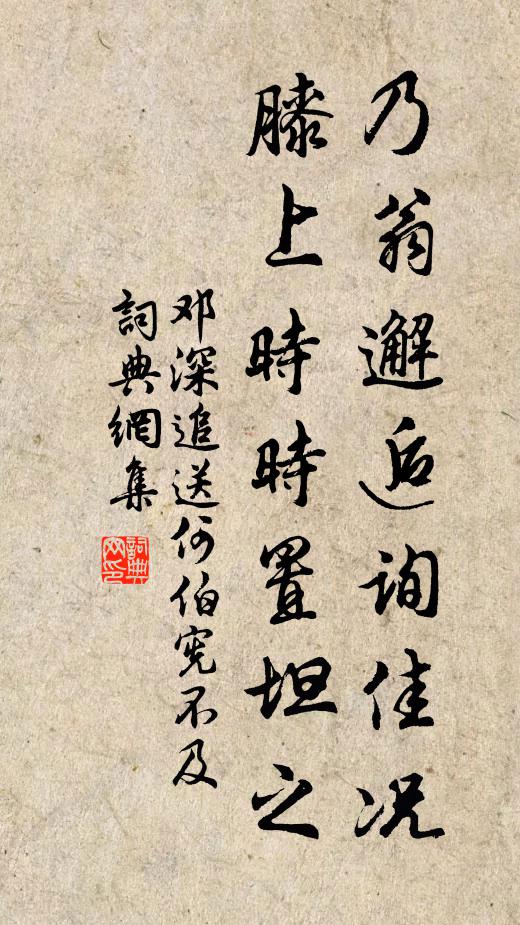 乃翁邂逅询佳况
膝上時時置坦之
邓深追送何伯宪不及
詞典網集
詞典网印